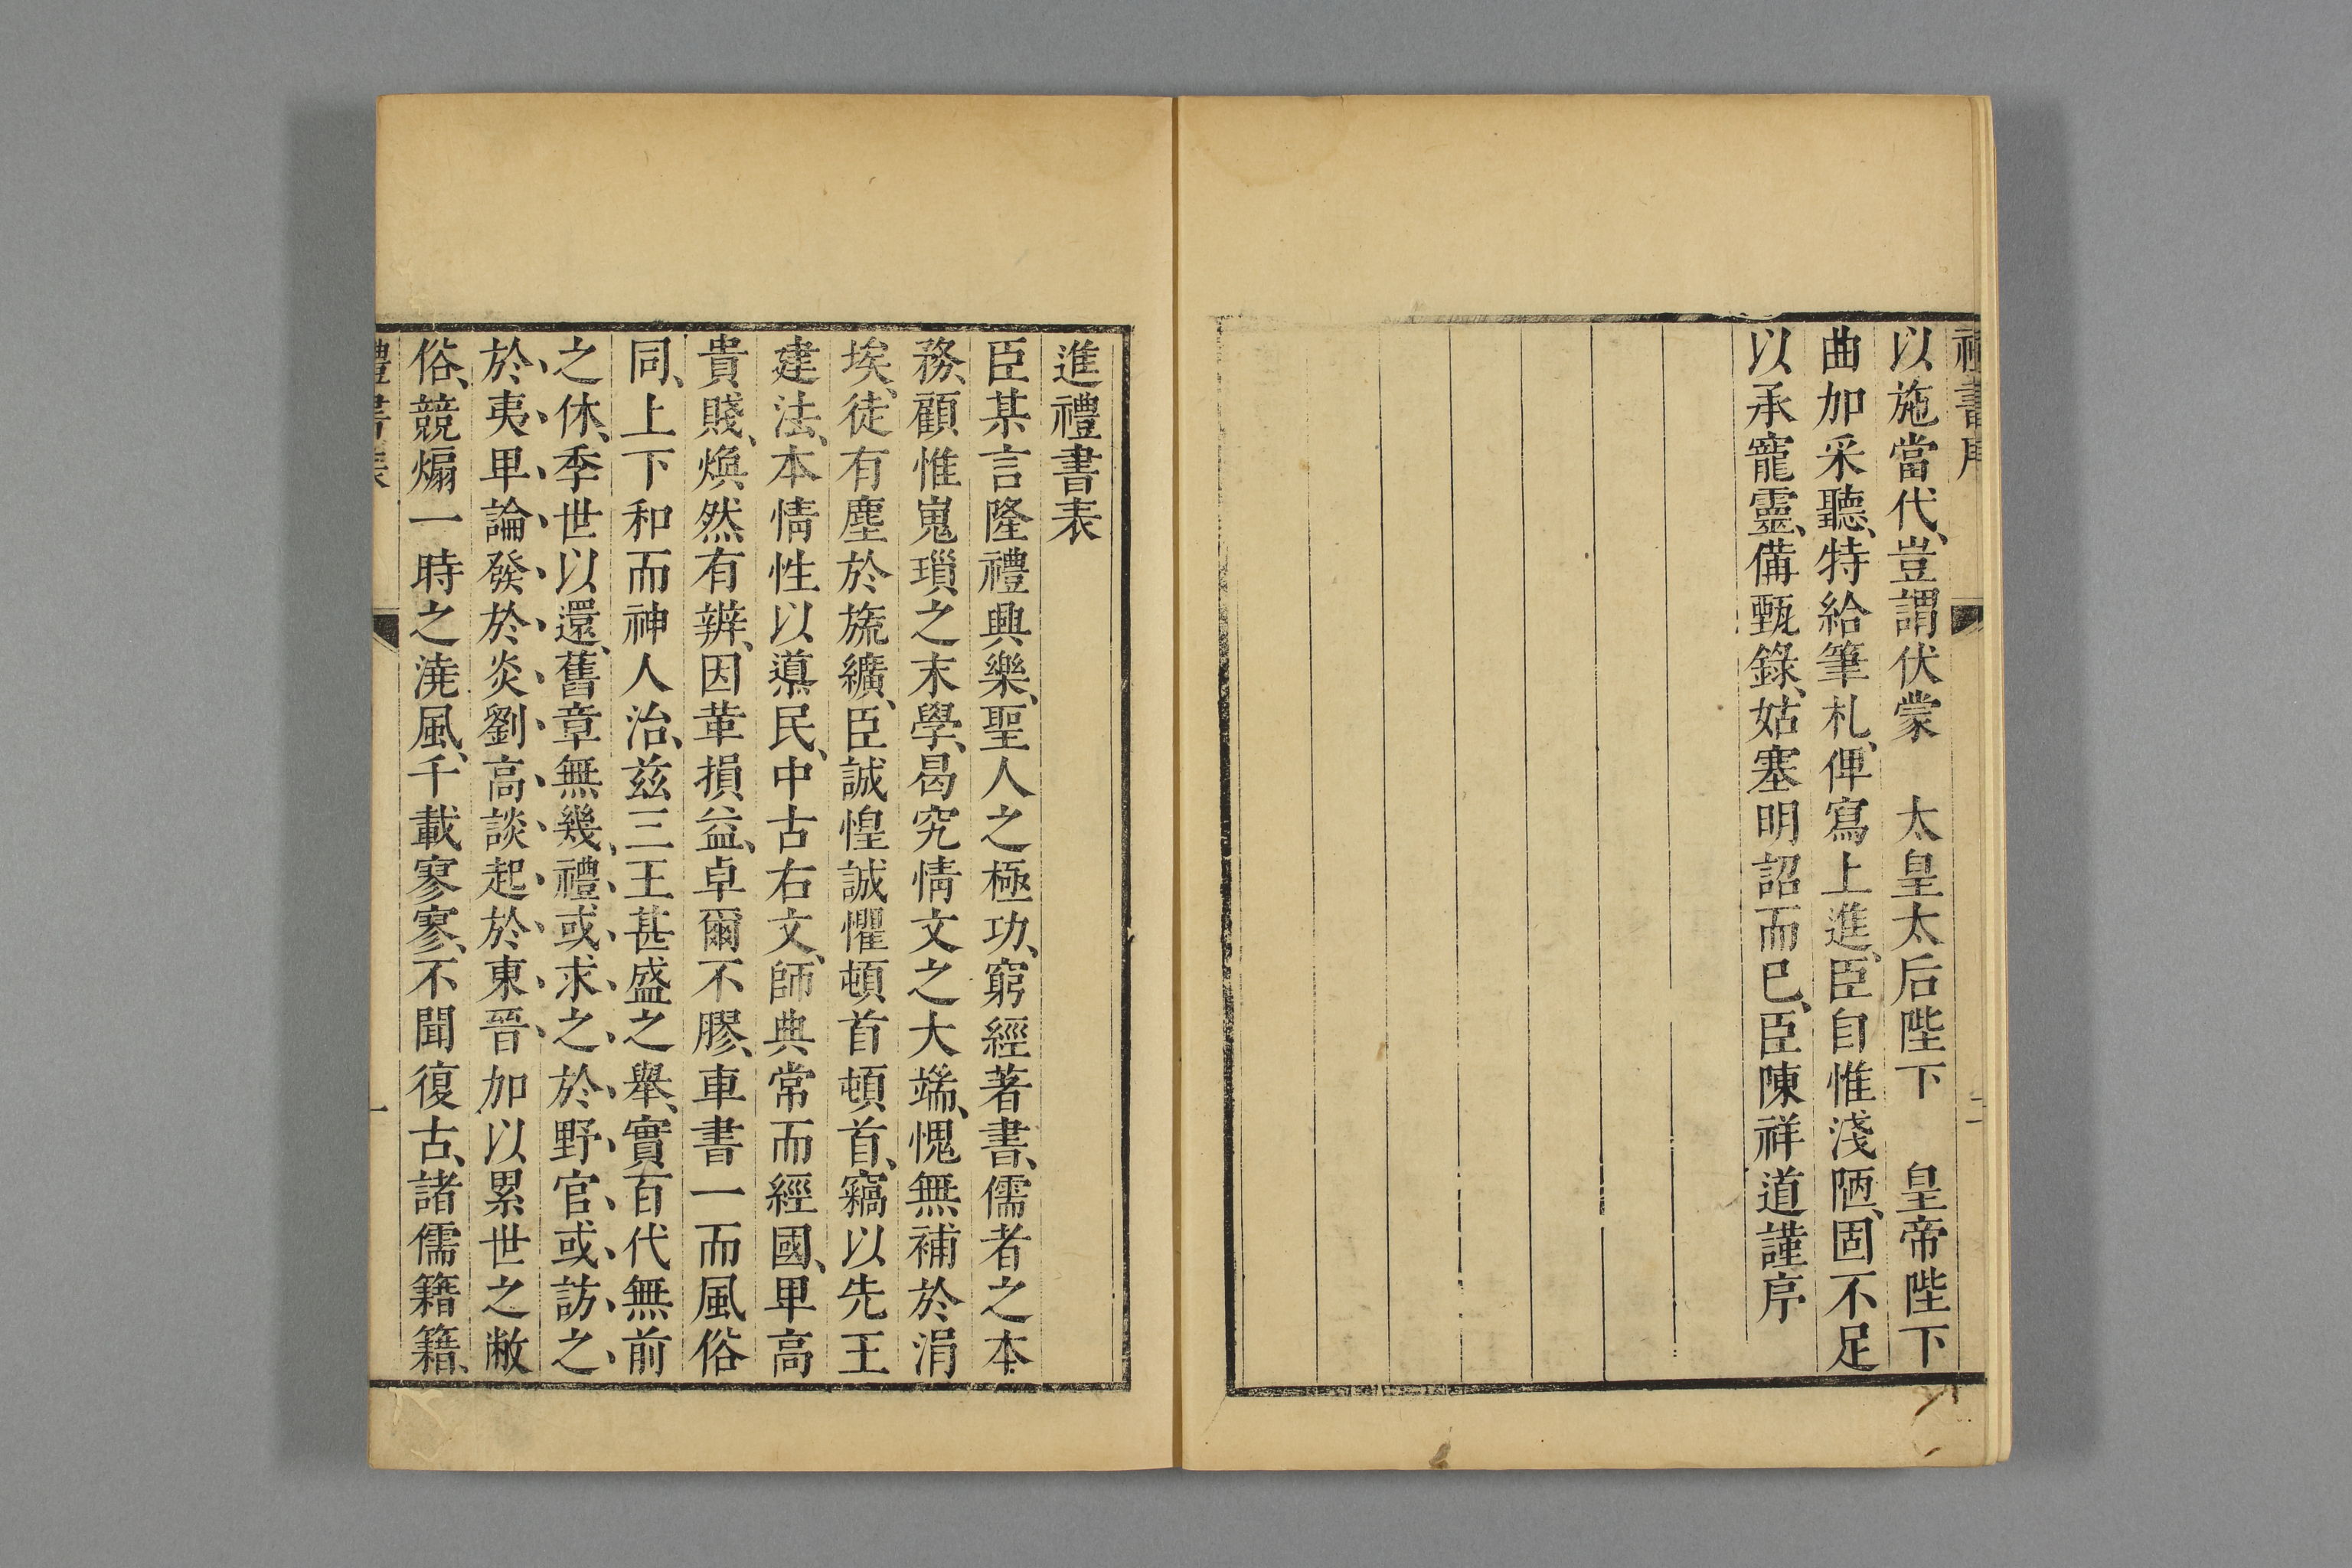 以施當代、豈謂伏蒙　太皇太后陛下　皇帝陛下
曲加采聽、特給筆札、俾寫上進、臣自惟淺陋、固不足
以承寵靈、備甄錄、姑塞明詔而已、臣陳祥道謹序
二
進禮書表
臣某言隆禮興樂、聖人之極功、窮經著書、儒者之本
務、顧惟嵬瑣之末學、曷究情文之大端、愧無補於涓
埃、徒有塵於旒纊、臣誠惶誠懼頓首頓首、竊以先王
建法、本情性以導民、中古右文、師典常而經國、卑高
貴賤、煥然有辨、因革損益、卓爾不膠、車書一而風俗
同、上下和而神人治、茲三王甚盛之舉、實百代無前
之休、季世以還、舊章無幾、禮、或、求、之、於、野、官、或、訪、之、
於、夷、卑、論、發、於、炎、劉、高、談、起、於、東、晉、加以累世之敝
俗、競煽一時之澆風、千載寥寥、不聞復古、諸儒籍籍、
禮書表
一